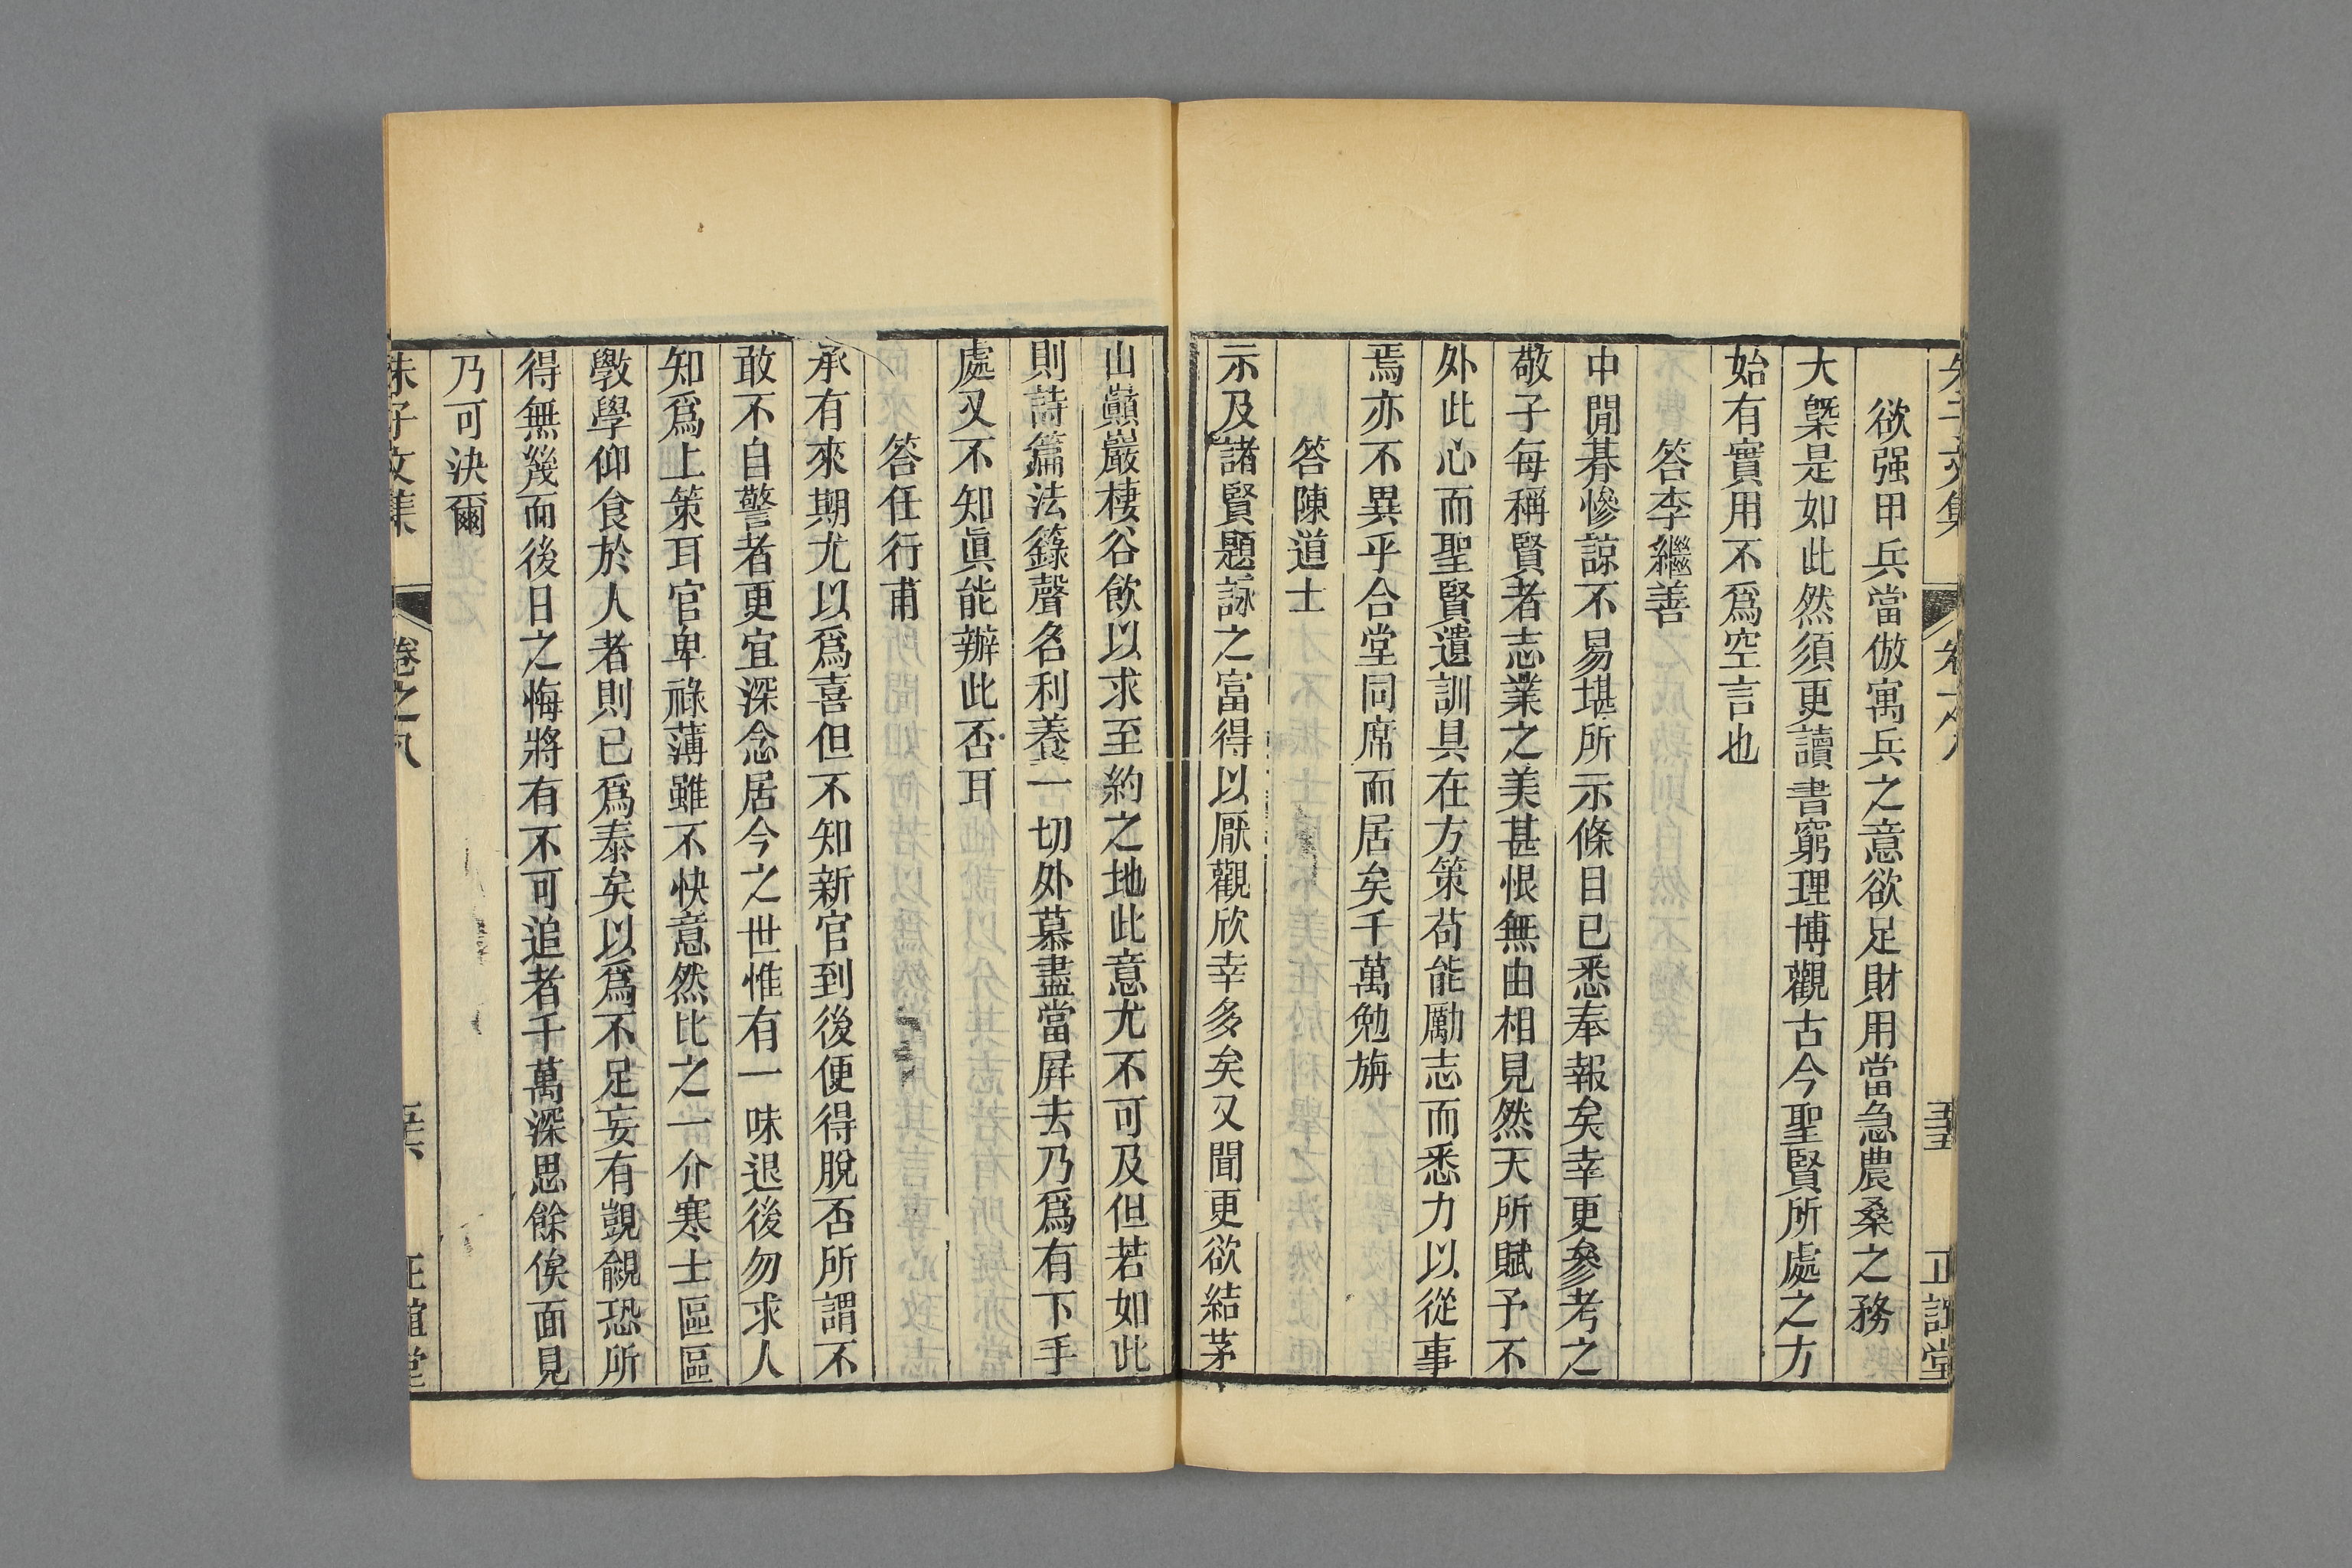 欲强甲兵當倣寓兵之意欲足財用當急農桑之務
大槩是如此然須更讀書窮理博觀古今聖賢所處之方
始有實用不爲空言也
答李繼善
中閒朞慘諒不易堪所示條目已悉奉報矣幸更參考之
敬子每稱賢者志業之美甚恨無由相見然天所賦予不
外此心而聖賢遺訓具在方策苟能勵志而悉力以從事
焉亦不異乎合堂同席而居矣千萬勉旃
答陳道士
示及諸賢題詠之富得以厭觀欣幸多矣又聞更欲結茅
山巔巖棲谷飲以求至約之地此意尤不可及但若如此
則詩篇法籙聲名利養一切外慕盡當屛去乃爲有下手
處又不知眞能辦此否耳
答任行甫
承有來期尤以爲喜但不知新官到後便得脫否所謂不
敢不自警者更宜深念居今之世惟有一味退後勿求人
知爲上策耳官卑祿薄雖不快意然比之一介寒士區區
斆學仰食於人者則已爲泰矣以爲不足妄有覬覦恐所
得無幾而後日之悔將有不可追者千萬深思餘俟面見
乃可決爾
朱子文集
卷之八
正誼堂